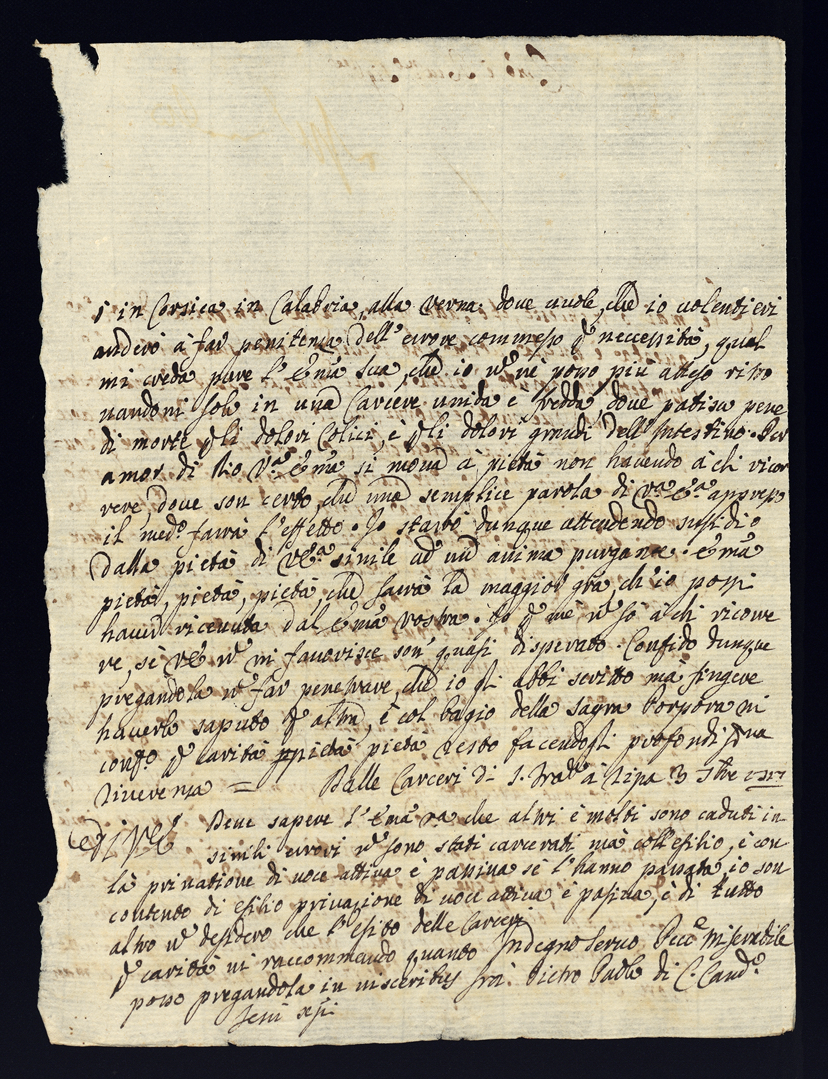 ò in Corsica in Calabria, alla Verna. dove vuole, che io volentieri
anderò à far penitenza dell'errore commesso p neccessità, qual
mi creda pure l'Em.ã sua, che io nè posso più atteso ritro
vandomi solo in una Carcere umida e fredda, dove patisco pene
di morte p li dolori Colici, è p li dolori grandi dell'Intestino. Per
amor di Dio V.ª Em.ã si mova à pietà non havendo à chi ricor
rere, dove son certo, che una semplice parola di V.ª E.ª appresso
il med.º farrà l'effetto. Io starò dunque attendendo sussidio
dalla pietà di simile ad un'anima purgante. Em.ã
pietà, pietà, pietà, che sarà la maggior gra, ch'io possi
haver ricevuta dal Em.ã vostra. Io p me, sò à chi ricorre
re, sè VE mi favorisce son quasi disperato. Confido dunque
pregandola far penetrare, che io gli abbi scritto mà fingere
haverlo saputo p altra, è col bagio della sagra Porpora mi
conf.º p carità pietà pietà resto facendogli profondis.ma
riverenza = Dalle Carceri di S. à Ripa 3
Di VE Deve sapere l'Em.ã che altri è molti sono caduti in
simili errori sono stati carcerati mà coll'esilio, è con
la privatione di voce attiva è passiva sè l'hanno passata, io son
contento di esilio privazione di voce attiva è pasiva, è di tutto
altro desidero che l'esito delle Carceri
p carità mi raccommando quanto Indegno Servo Miserabile
posso pregandola in visceribus frà Pietro Paolo di